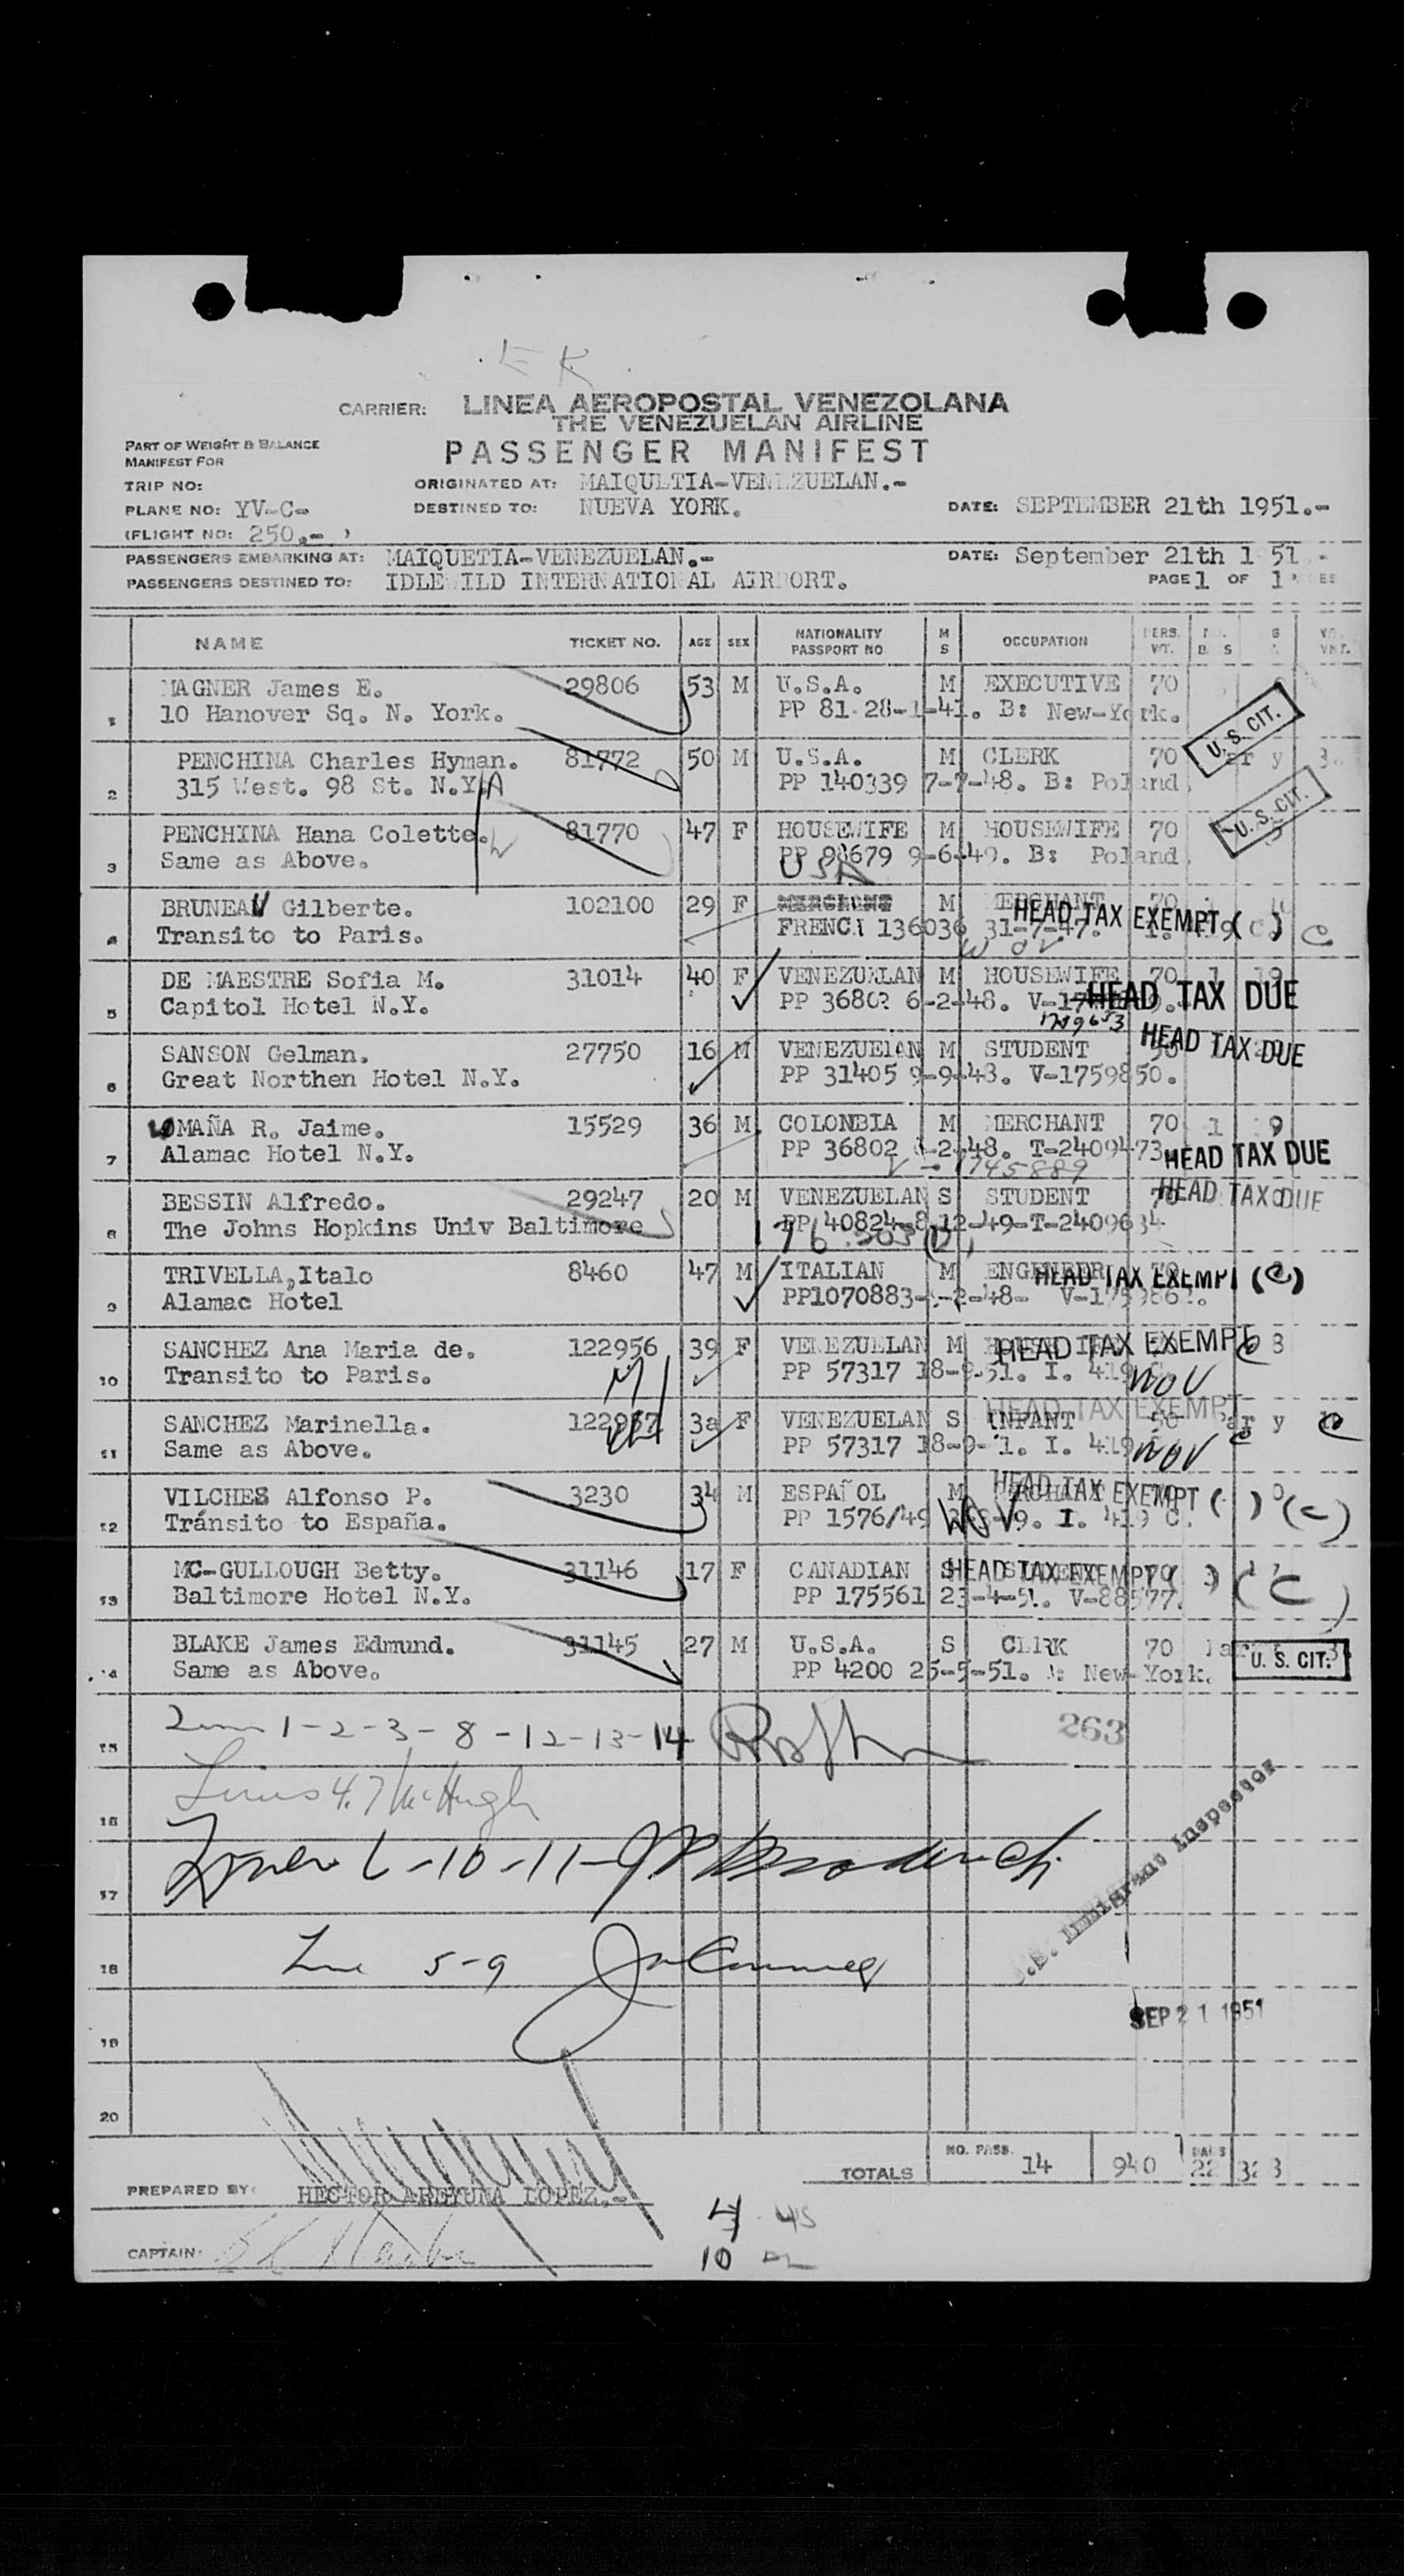 E K
CARRIER: LINEA AEROPOSTAL VENEZOLANA
THE VENEZUELAN AIRLINE
PART OF WEIGHT & BALANCE
MANIFEST FOR
PASSENGER MANIFEST
TRIP NO: ORIGINATED AT: MAIQUETIA-VENEZUELAN.-
PLANE NO: YV-C- DESTINED TO: NUEVA YORK. DATE: SEPTEMBER 21th 1951.-
(FLIGHT NO: 250.- )
PASSENGERS EMBARKING AT: MAIQUETIA-VENEZUELAN.- DATE: September 21th 1 51 -
PASSENGERS DESTINED TO: IDLEWILD INTERNATIONAL AIRPORT. PAGE 1 OF 1
NAME TICKET NO. AGE SEX NATIONALITY PASSPORT NO M S OCCUPATION PERS. WT.
1 MAGNER James E. 29806 53 M U.S.A. M EXECUTIVE 70
10 Hanover Sq. N. York. PP 81 28-1-41. B: New-York. U.S. CIT.
2 PENCHINA Charles Hyman. 81772 50 M U.S.A. M CLERK 70
315 West. 98 St. N.Y. PP 140339 7-7-48. B: Poland. U.S. CIT.
3 PENCHINA Hana Colette. 81770 47 F HOUSEWIFE M HOUSEWIFE 70
Same as Above. PP 98679 9-6-49. B: Poland.
USA
4 BRUNEAU Gilberte. 102100 29 F M MERCHANT 70 HEAD TAX EXEMPT (C)
Transito to Paris. FRENCH 136036 31-7-47. C
5 DE MAESTRE Sofia M. 31014 40 F VENEZUELAN M HOUSEWIFE 70 1 19
Capitol Hotel N.Y. PP 36802 6-2-48. HEAD TAX DUE
1759653
6 SANSON Gelman. 27750 16 M VENEZUELAN M STUDENT HEAD TAX DUE
Great Northen Hotel N.Y. PP 31405 9-9-48. V-1759850.
7 LOMAÑA R. Jaime. 15529 36 M COLONBIA M MERCHANT 70 1 9
Alamac Hotel N.Y. PP 36802 6-2-48. T-2409473 HEAD TAX DUE
V-1745889
8 BESSIN Alfredo. 29247 20 M VENEZUELAN S STUDENT 70 HEAD TAX DUE
The Johns Hopkins Univ Baltimore PP 40824-8-12-49-T-2409634
9 TRIVELLA,Italo 8460 47 M ITALIAN M ENGENEER HEAD TAX EXEMPT (C)
Alamac Hotel PP1070883- -2-48-
10 SANCHEZ Ana Maria de. 122956 39 F VENEZUELAN M HEAD TAX EXEMPT C
Transito to Paris. PP 57317 18-9-51. I. 419 WOV
11 SANCHEZ Marinella. 122957 3a F VENEZUELAN S INFANT HEAD TAX EXEMPT C
Same as Above. PP 57317 18-9- 1. I. 419 WOV
12 VILCHES Alfonso P. 3230 34 M ESPAÑOL M MERCHANT HEAD TAX EXEMPT ( ) (C)
Tránsito to España. PP 1576/49 I. 419 C.
13 MC-GULLOUGH Betty. 31146 17 F CANADIAN S STUDENT HEAD TAX EXEMPT ( ) (C)
Baltimore Hotel N.Y. PP 175561 23-4-51. V-88577.
14 BLAKE James Edmund. 31145 27 M U.S.A. S CLERK 70
Same as Above. PP 4200 25-5-51. New-York. U. S. CIT.
15 1-2-3-8-12-13-14 263
16 Lines 4.7 McHugh
17 Lines 6-10-11
18 Line 5-9
U.S. Immigrant Inspector
SEP 21 1951
19
20
TOTALS NO. PASS. 14 940 22 323
PREPARED BY: HECTOR AREYUNA LOPEZ.-
4
CAPTAIN: 10